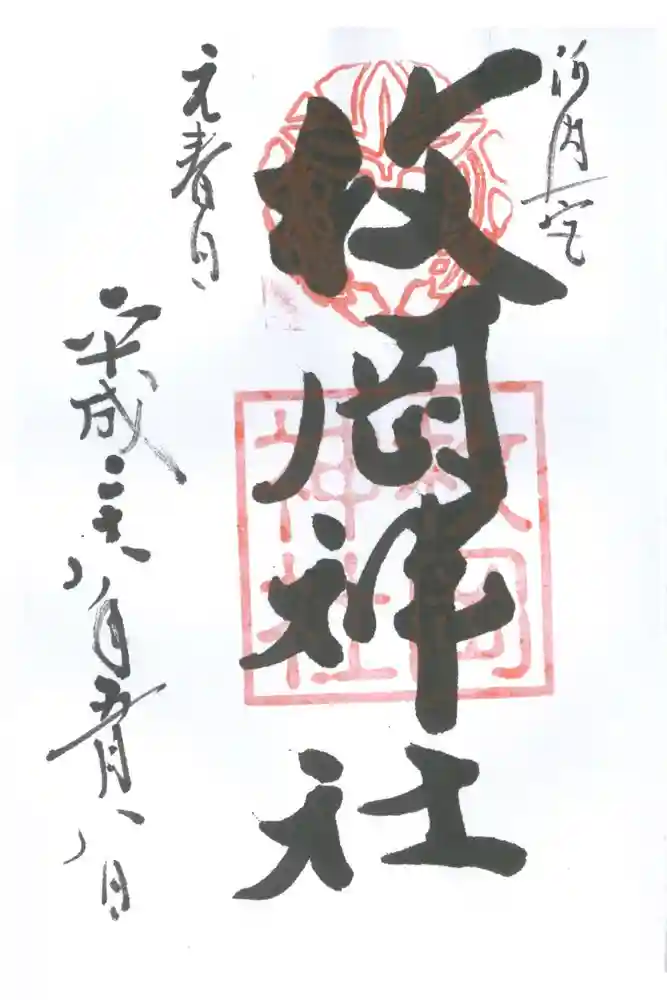 河内一宮
枚岡神社
元春日
平成二十八年五月八日
枚岡
神社